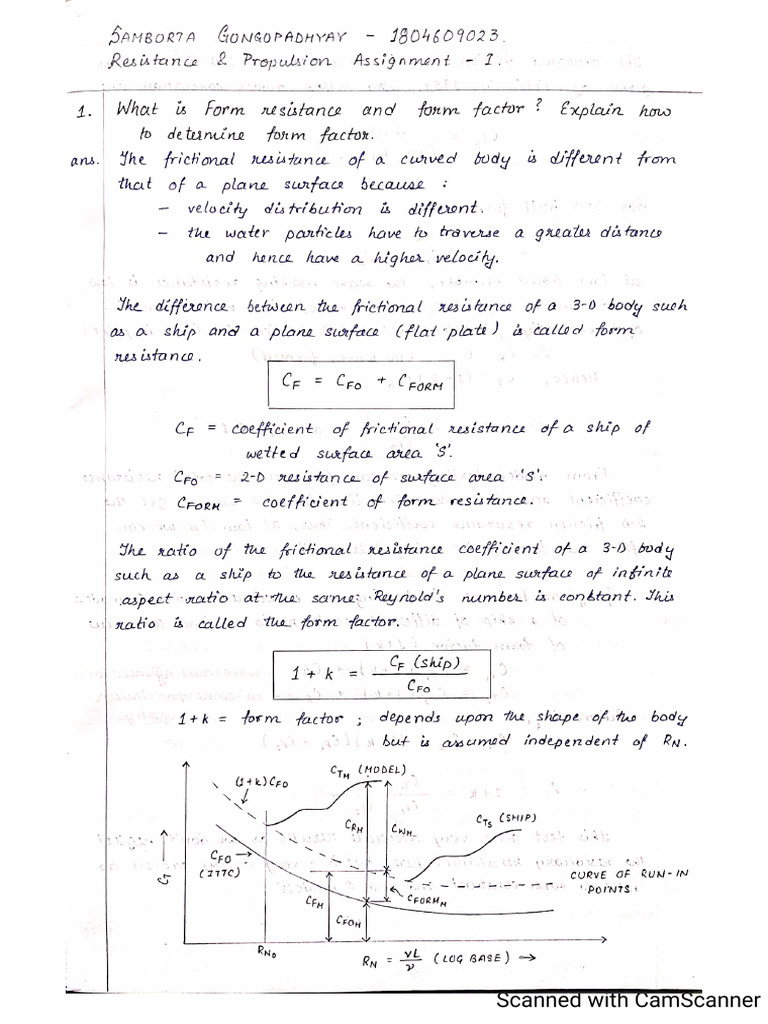 SAMBORTA GONGOPADHYAY - 1804609023.
Resistance & Propulsion Assignment - I.
1. What is Form resistance and form factor? Explain how
to determine form factor.
ans. The frictional resistance of a curved body is different from
that of a plane surface because :
- velocity distribution is different.
- the water particles have to traverse a greater distance
and hence have a higher velocity.
The difference between the frictional resistance of a 3-D body such
as a ship and a plane surface (flat plate) is called form
resistance.
CF = CFO + CFORM
CF = coefficient of frictional resistance of a ship of
wetted surface area 'S'.
CFO = 2-D resistance of surface area 'S'.
CFORM = coefficient of form resistance.
The ratio of the frictional resistance coefficient of a 3-D body
such as a ship to the resistance of a plane surface of infinite
aspect ratio at the same Reynold's number is constant. This
ratio is called the form factor.
1 + k = CF (ship) / CFO
1 + k = form factor ; depends upon the shape of the body
but is assumed independent of RN.
CTM (MODEL)
(1+k)CFO
CRM
CWM
CTS (SHIP)
CFO →
(ITTC)
CT
CURVE OF RUN-IN
POINTS
CFM
CFORMM
CFOM
RNO
RN = vL/ν (LOG BASE) →
Scanned with CamScanner